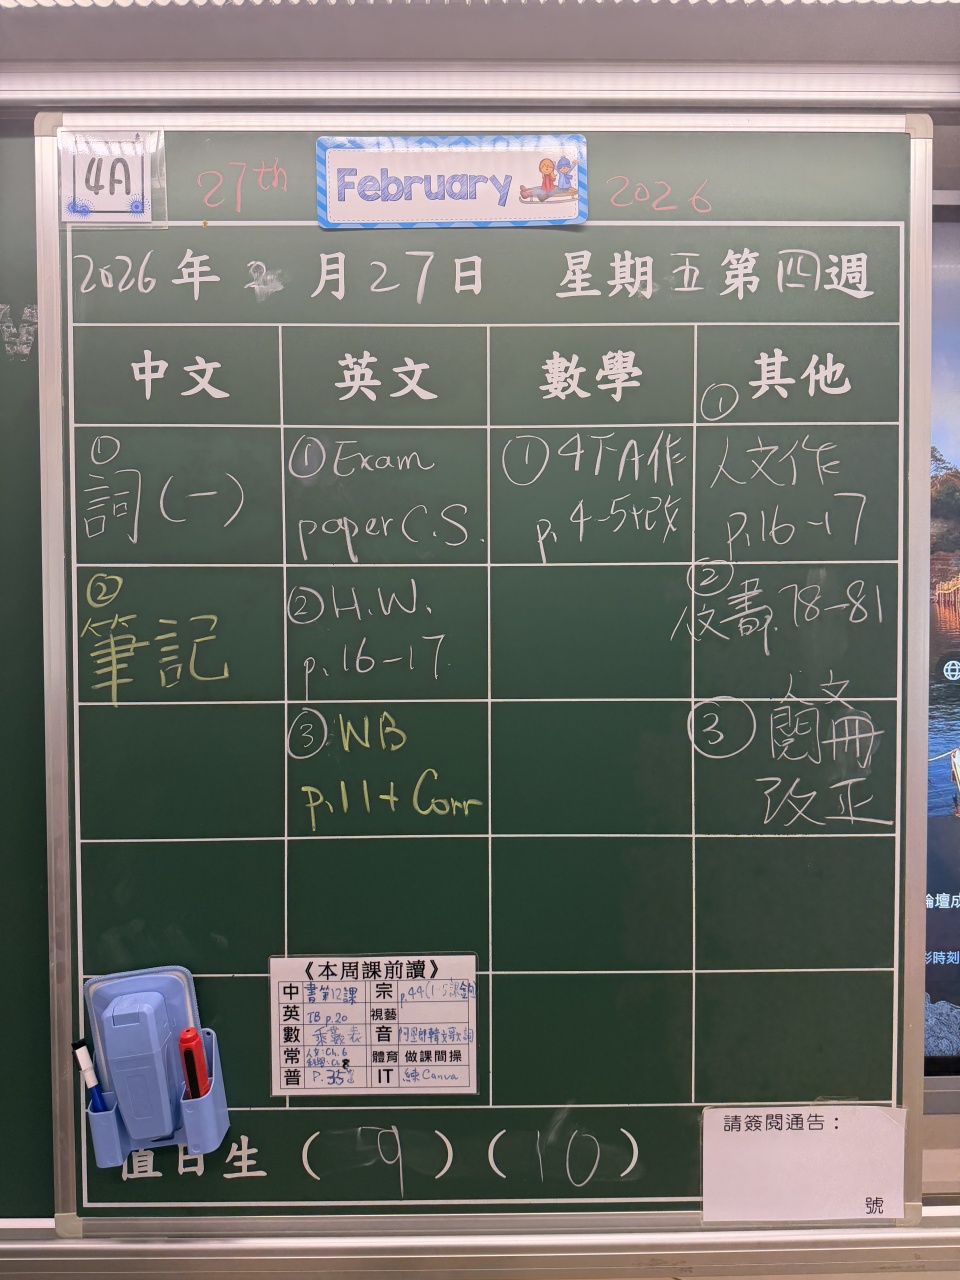 4A
27th February 2026
2026年2月27日 星期五第四週
中文 英文 數學 其他
①
詞(一)
②
筆記
① Exam
paper C.S.
② H.W.
p.16-17
③ WB
p.11+Corr
① 4下A作
p.4-5+改
①
人文作
p.16-17
②
p.78-81
③ 人文
閱冊
改正
《本周課前讀》
中 書第12課 宗 p.44(1-5課
英 TB p.20 視藝
數 乘數表 音
常 人文:Ch.6 體育 做課間操
Ch.8
普 P.35 IT 練Canva
值日生 (9)(10)
請簽閱通告:
號
論壇成
彩時刻